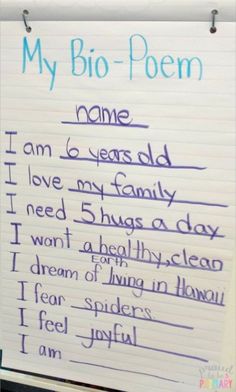 My Bio-Poem
name
I am 6 years old
I love my family
I need 5 hugs a day
I want a healthy, clean
Earth
I dream of living in Hawaii
I fear spiders
I feel joyful
I am